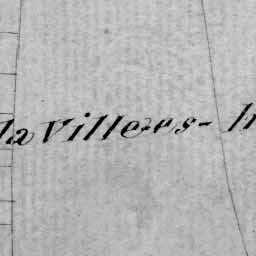 la Villers-